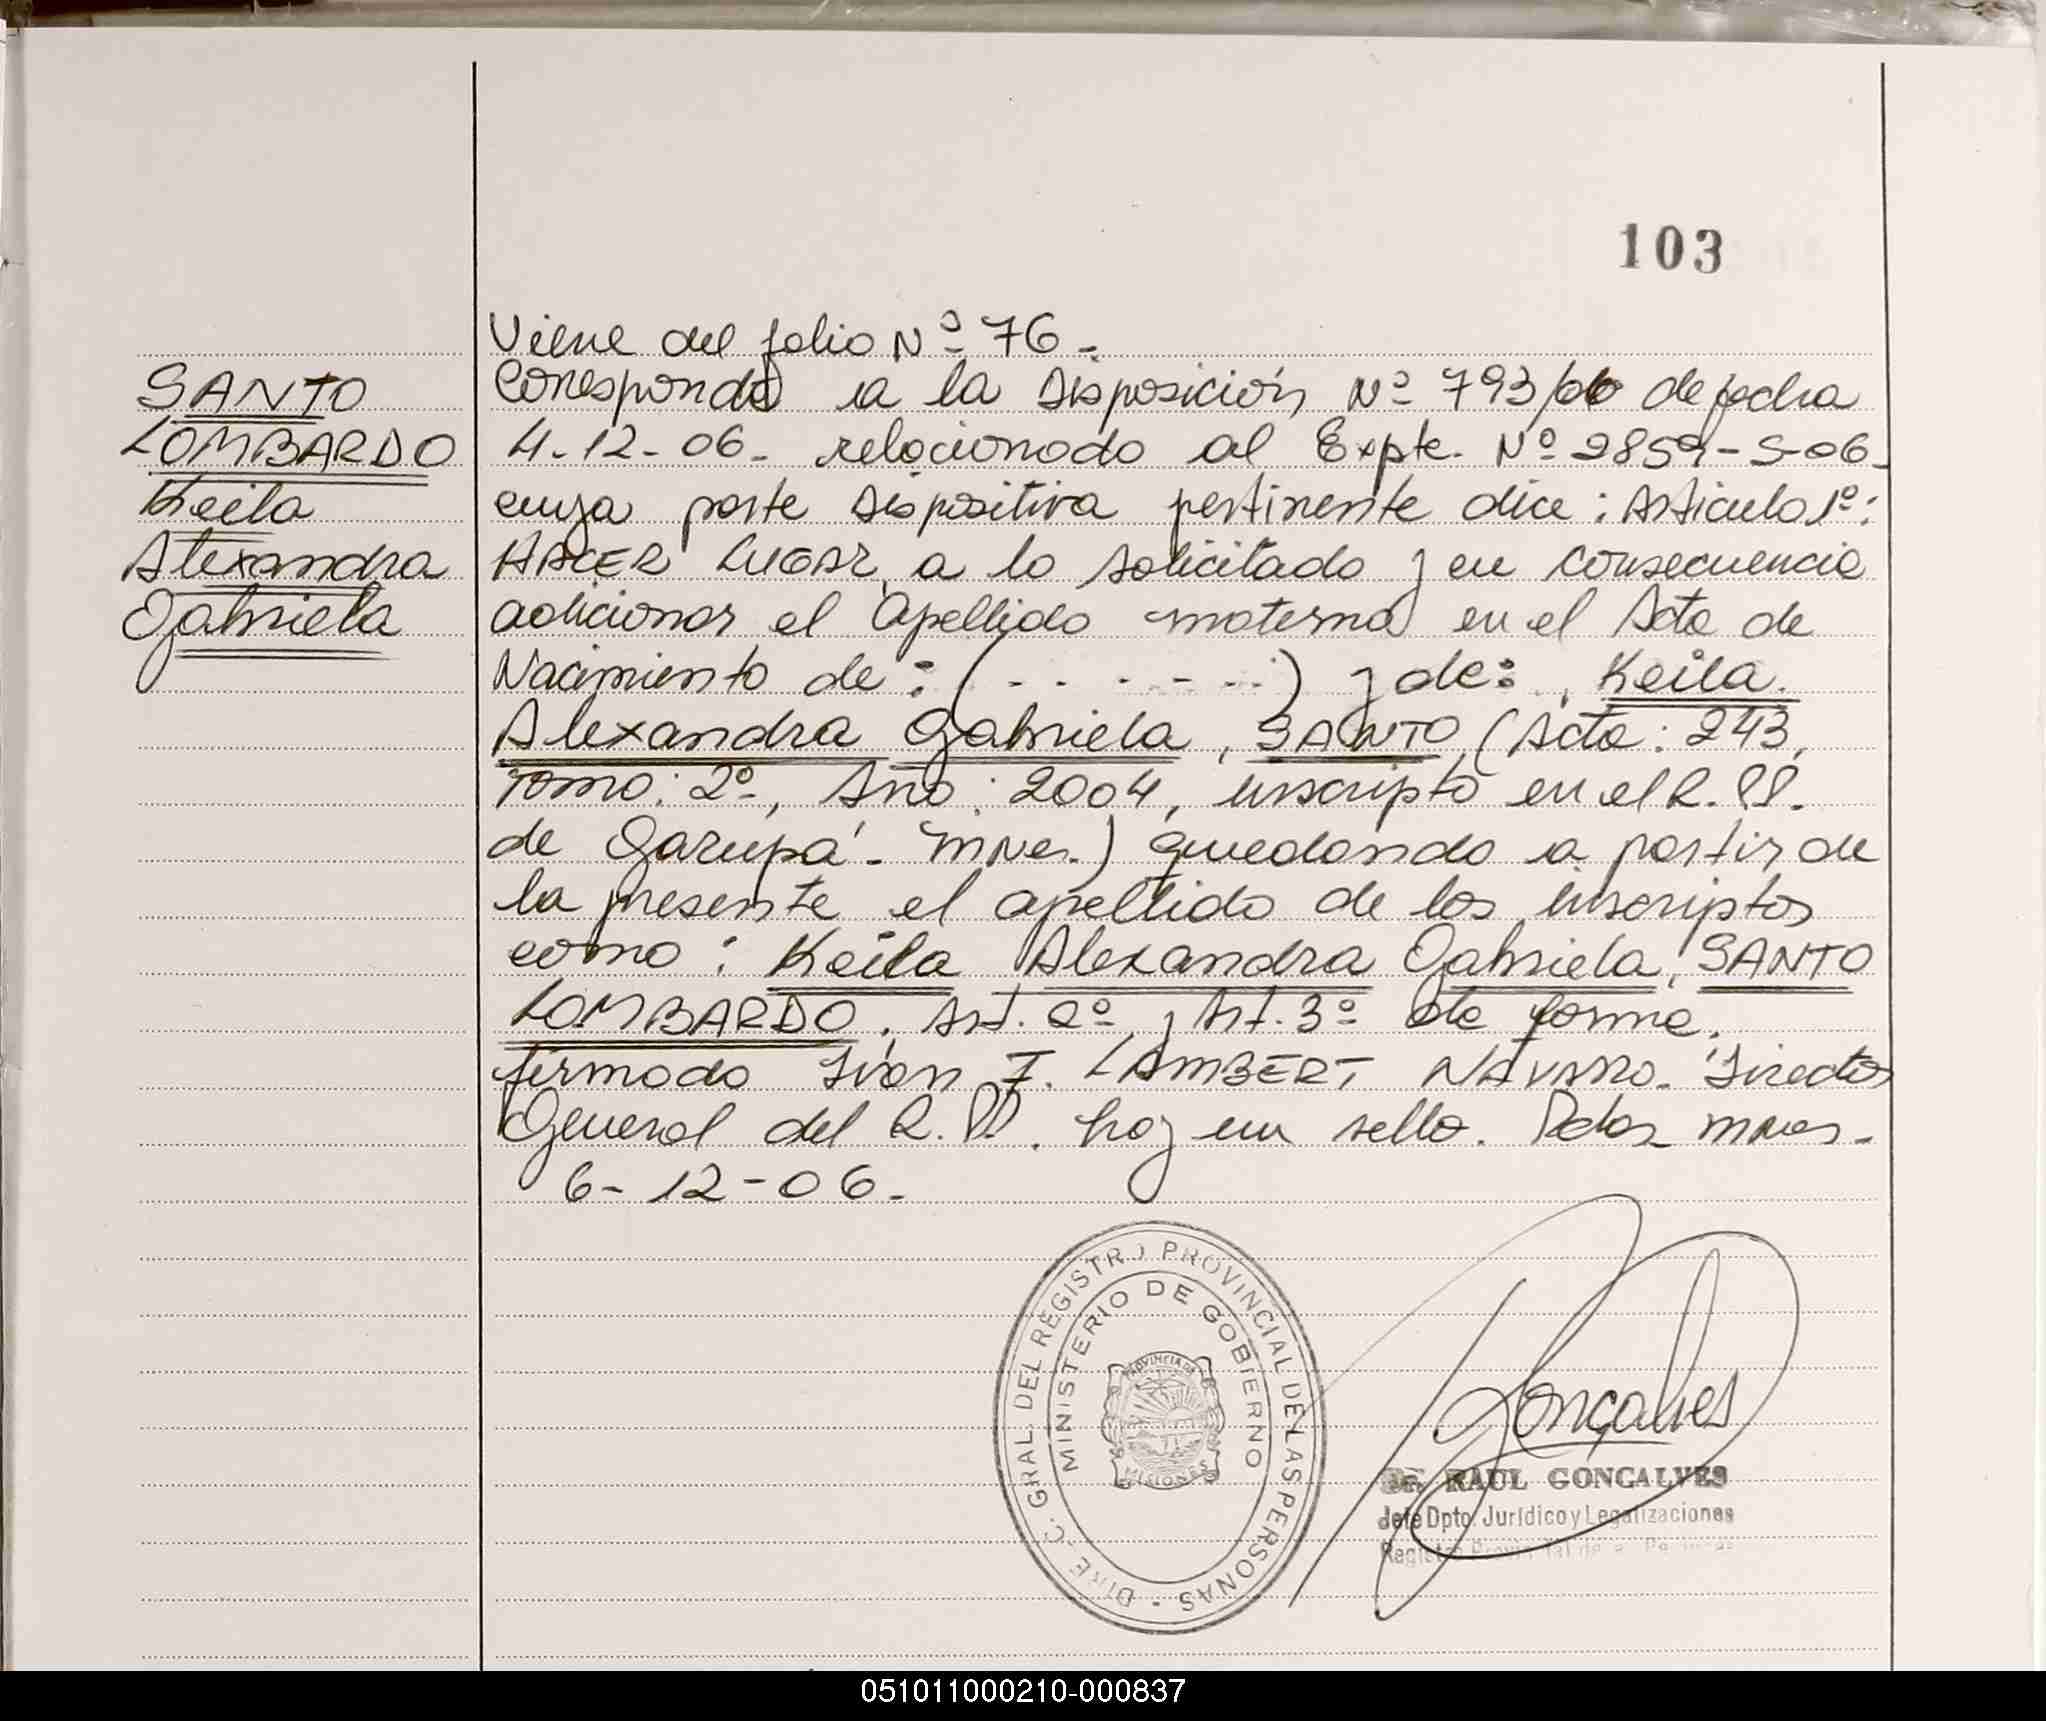 103
SANTO
LOMBARDO
Keila
Alexandra
Gabriela
Viene del folio Nº 76.
Corresponde a la Disposición Nº 793/06 de fecha
4-12-06- relacionado al Expte. Nº 2859-S-06-
cuya parte dispositiva pertinente dice: Artículo 1º:
HACER LUGAR, a lo solicitado y en consecuencia
adicionar el apellido materno en el Acta de
Nacimiento de: (- - - - - -) y de: Keila
Alexandra Gabriela, SANTO (Acta: 243,
Tomo: 2º, Año: 2004, inscripto en el R.PP.
de Garupá- Mnes.) quedando a partir de
la presente el apellido de los inscriptos
como: Keila Alexandra Gabriela, SANTO
LOMBARDO. Art. 2º y Art. 3º de forma.
firmado Iván F. LAMBERT NAVARRO. Director
General del R.PP. hay un sello. Pdas Mnes-
6-12-06.
DIREC. GRAL. DEL REGISTRO PROVINCIAL DE LAS PERSONAS -
MINISTERIO DE GOBIERNO
PROVINCIA DE
MISIONES
Gonçalves
Dr. RAUL GONCALVES
Jefe Dpto. Jurídico y Legalizaciones
Registro Provincial de las Personas
051011000210-000837